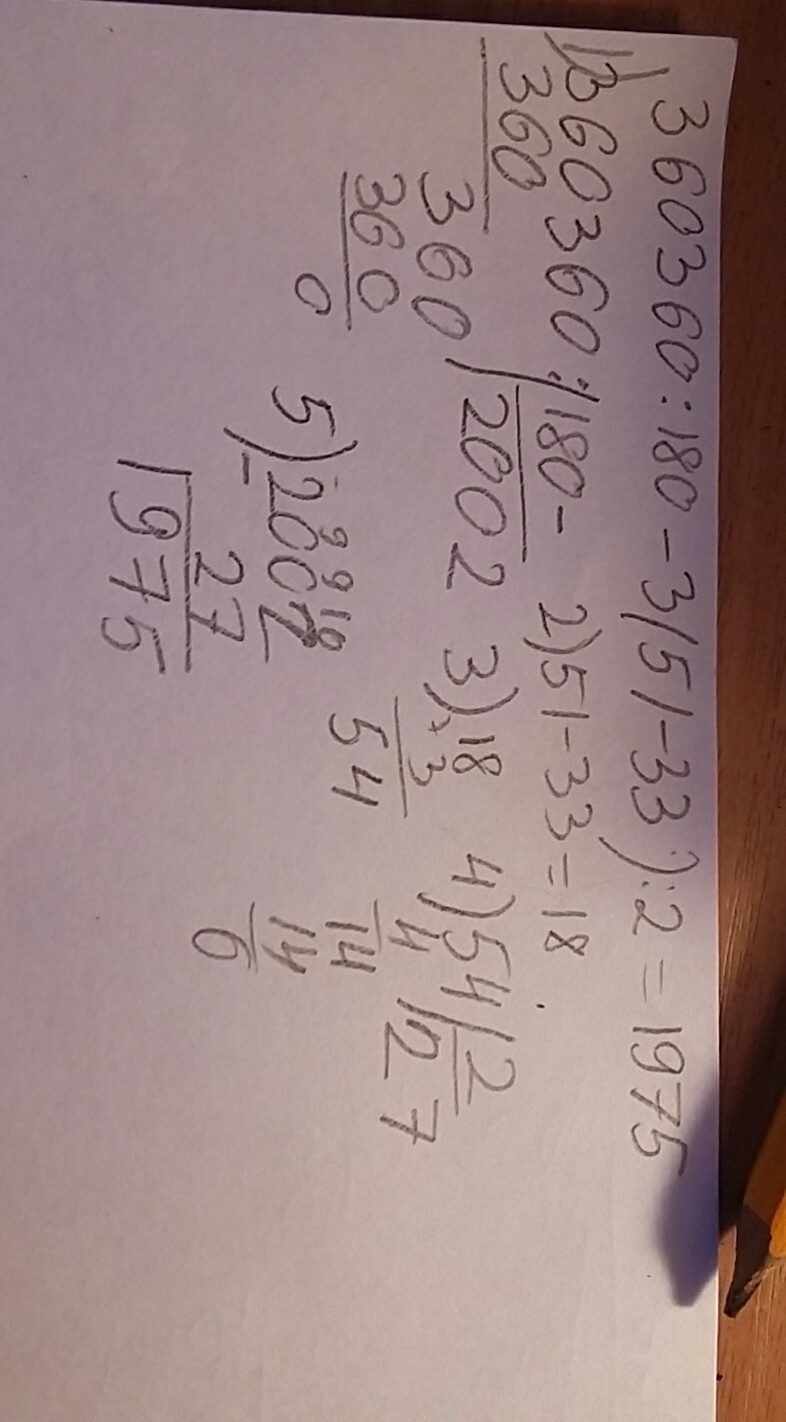 360360:180-3(51-33):2=1975
1)360360:180- 2)51-33=18
360
360 2002 3)×18 4)54 2
360 3 4 27
0 54 14
5)-2002 14
27 0
1975